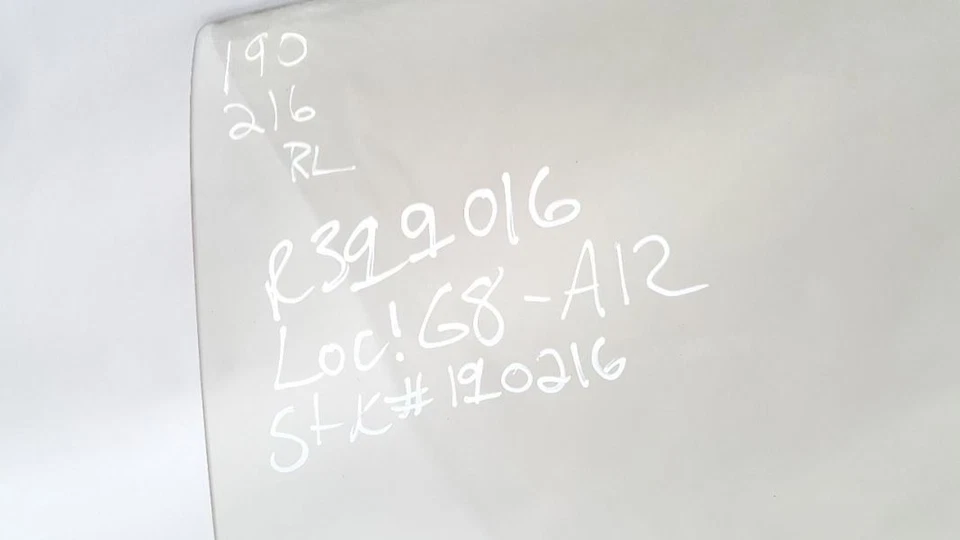 190
216
RL
R399016
Loc! G8-A12
Stk# 190216